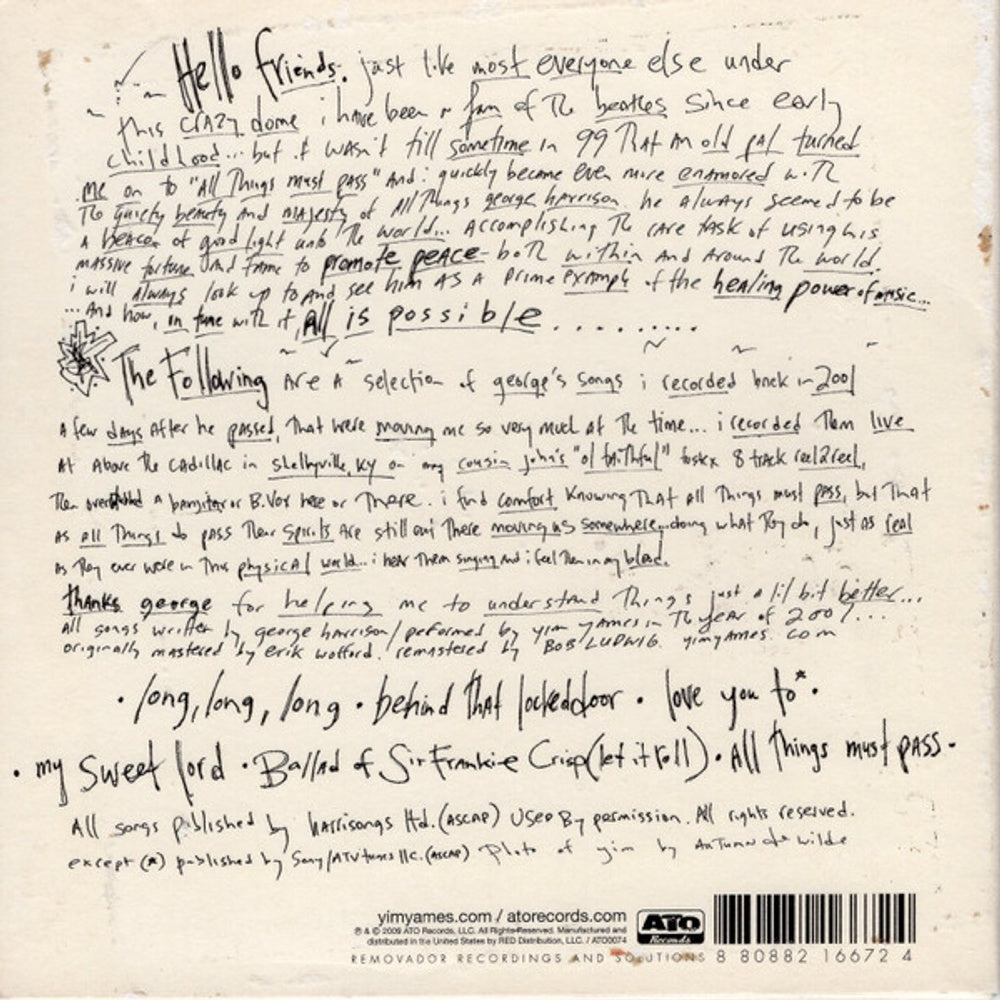 Hello friends. just like most everyone else under
this crazy dome i have been a fan of The beatles since early
childhood... but it wasn't till sometime in 99 That an old pal turned
me on to "All Things must pass" And i quickly became even more enamored with
The quiety beauty and majesty of All Things george harrison. he always seemed to be
a beacon of good light unto The world... Accomplishing The rare task of using his
massive fortune and fame to promote peace - both within and Around The world.
i will always look up to and see him as a prime example of the healing power of music...
... And how, in tune with it, All is possible..........
The Following Are A selection of george's songs i recorded back in 2001
A few days After he passed, That were moving me so very much at The time... i recorded Them live
At Above The Cadillac in shelbyville, KY on my cousin john's "ol faithful" foskx 8 track reel2reel,
Then overdubbed a banjitar or B.Vox here or There. i find comfort knowing That all Things must pass, but That
as all Things do pass Their spirits are still out There moving us somewhere, doing what They do, just as real
as They ever were in This physical world... i hear Them singing and i feel Them in my blood.
thanks george for helping me to understand Things just a lil bit better...
All songs written by george harrison/performed by yim yames in The year of 2001...
originally mastered by erik wofford. remastered by BOB LUDWIG. yimyames.com
• long, long, long • behind that locked door • love you to* •
• my sweet lord • Ballad of Sir Frankie Crisp (let it roll) • All Things must pass •
All songs published by harrisongs ltd. (ASCAP) Used By permission. All rights reserved.
except (*) published by Sony/ATV tunes llc. (ASCAP) Photo of yim by Autumn de wilde
yimyames.com / atorecords.com
℗ & © 2009 ATO Records, LLC. All Rights Reserved. Manufactured and
distributed in the United States by RED Distribution, LLC. / ATO0074
ATO Records
REMOVADOR RECORDINGS AND SOLUTIONS
8 80882 16672 4